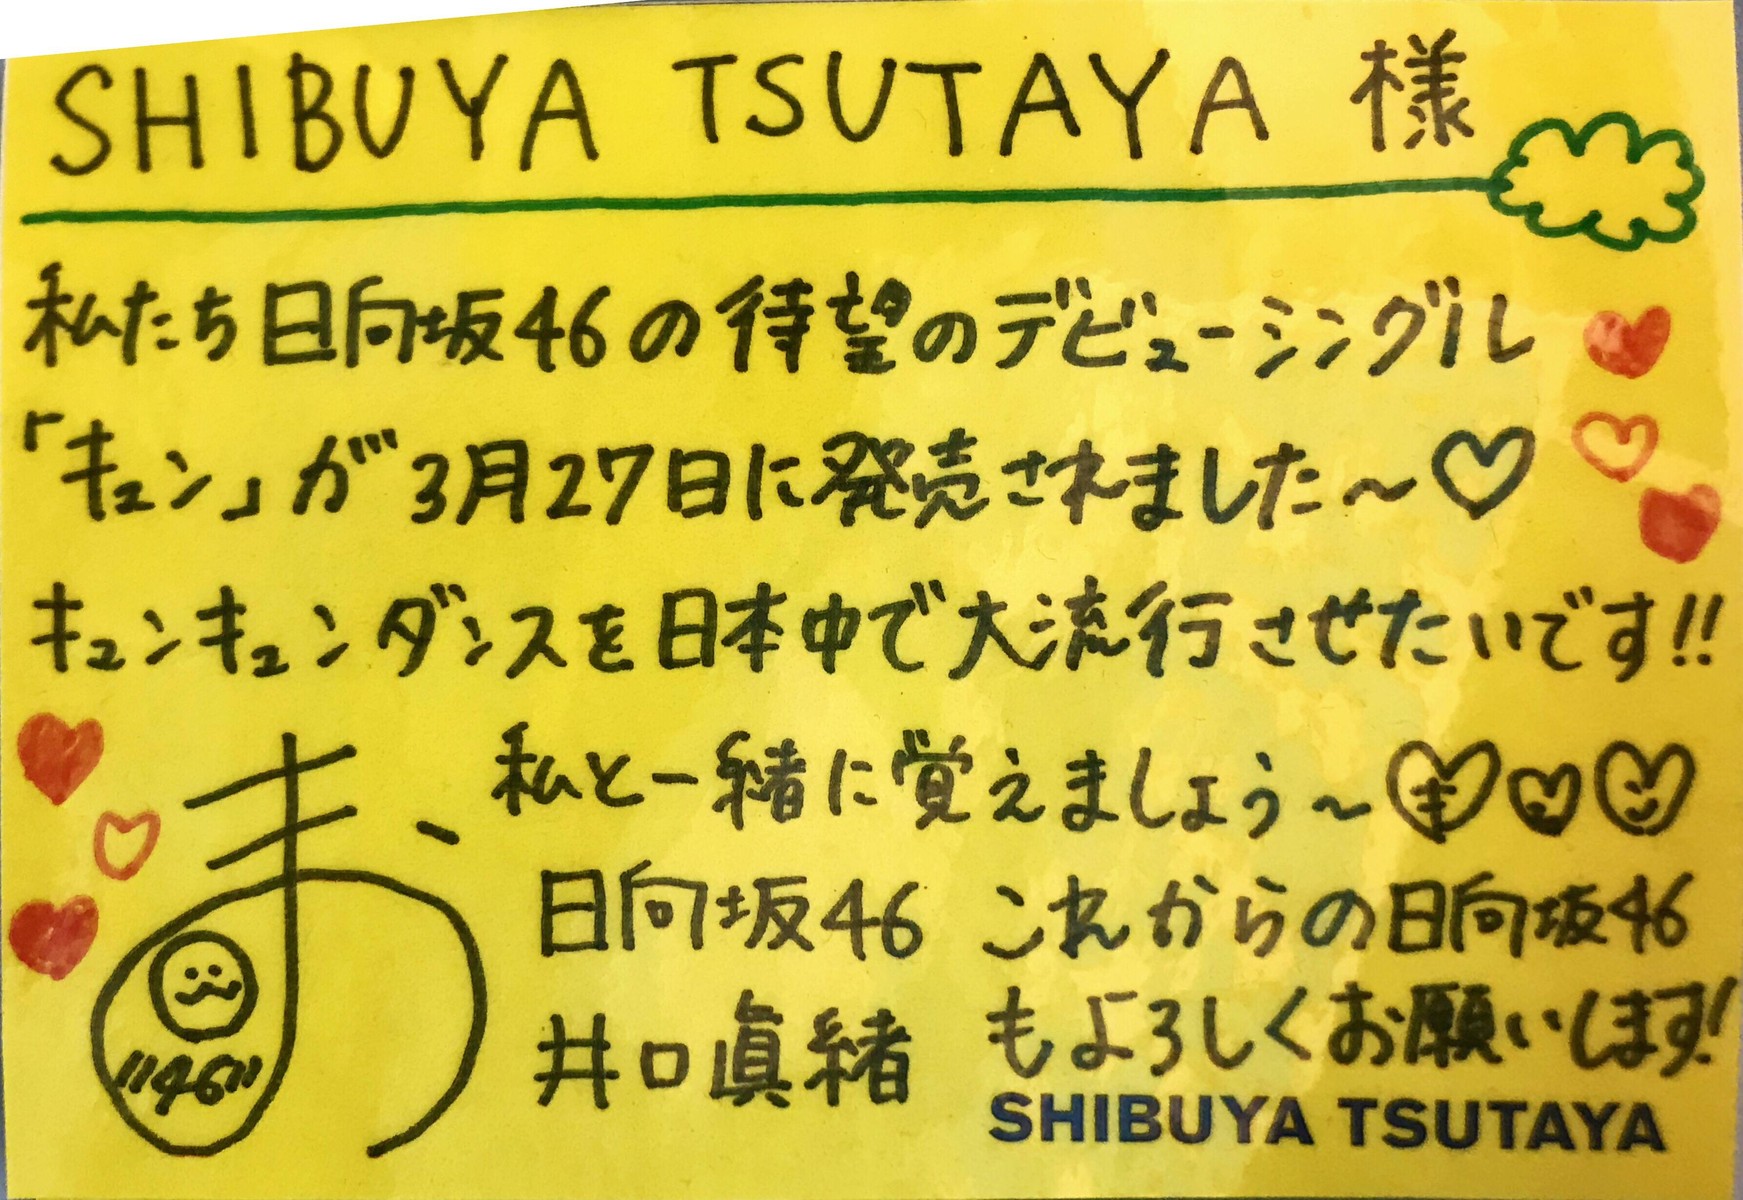 SHIBUYA TSUTAYA 様
私たち日向坂46の待望のデビューシングル
「キュン」が3月27日に発売されました~♡
キュンキュンダンスを日本中で大流行させたいです!!
私と一緒に覚えましょう~
まお
"46"
日向坂46
井口眞緒
これからの日向坂46
もよろしくお願いします!
SHIBUYA TSUTAYA